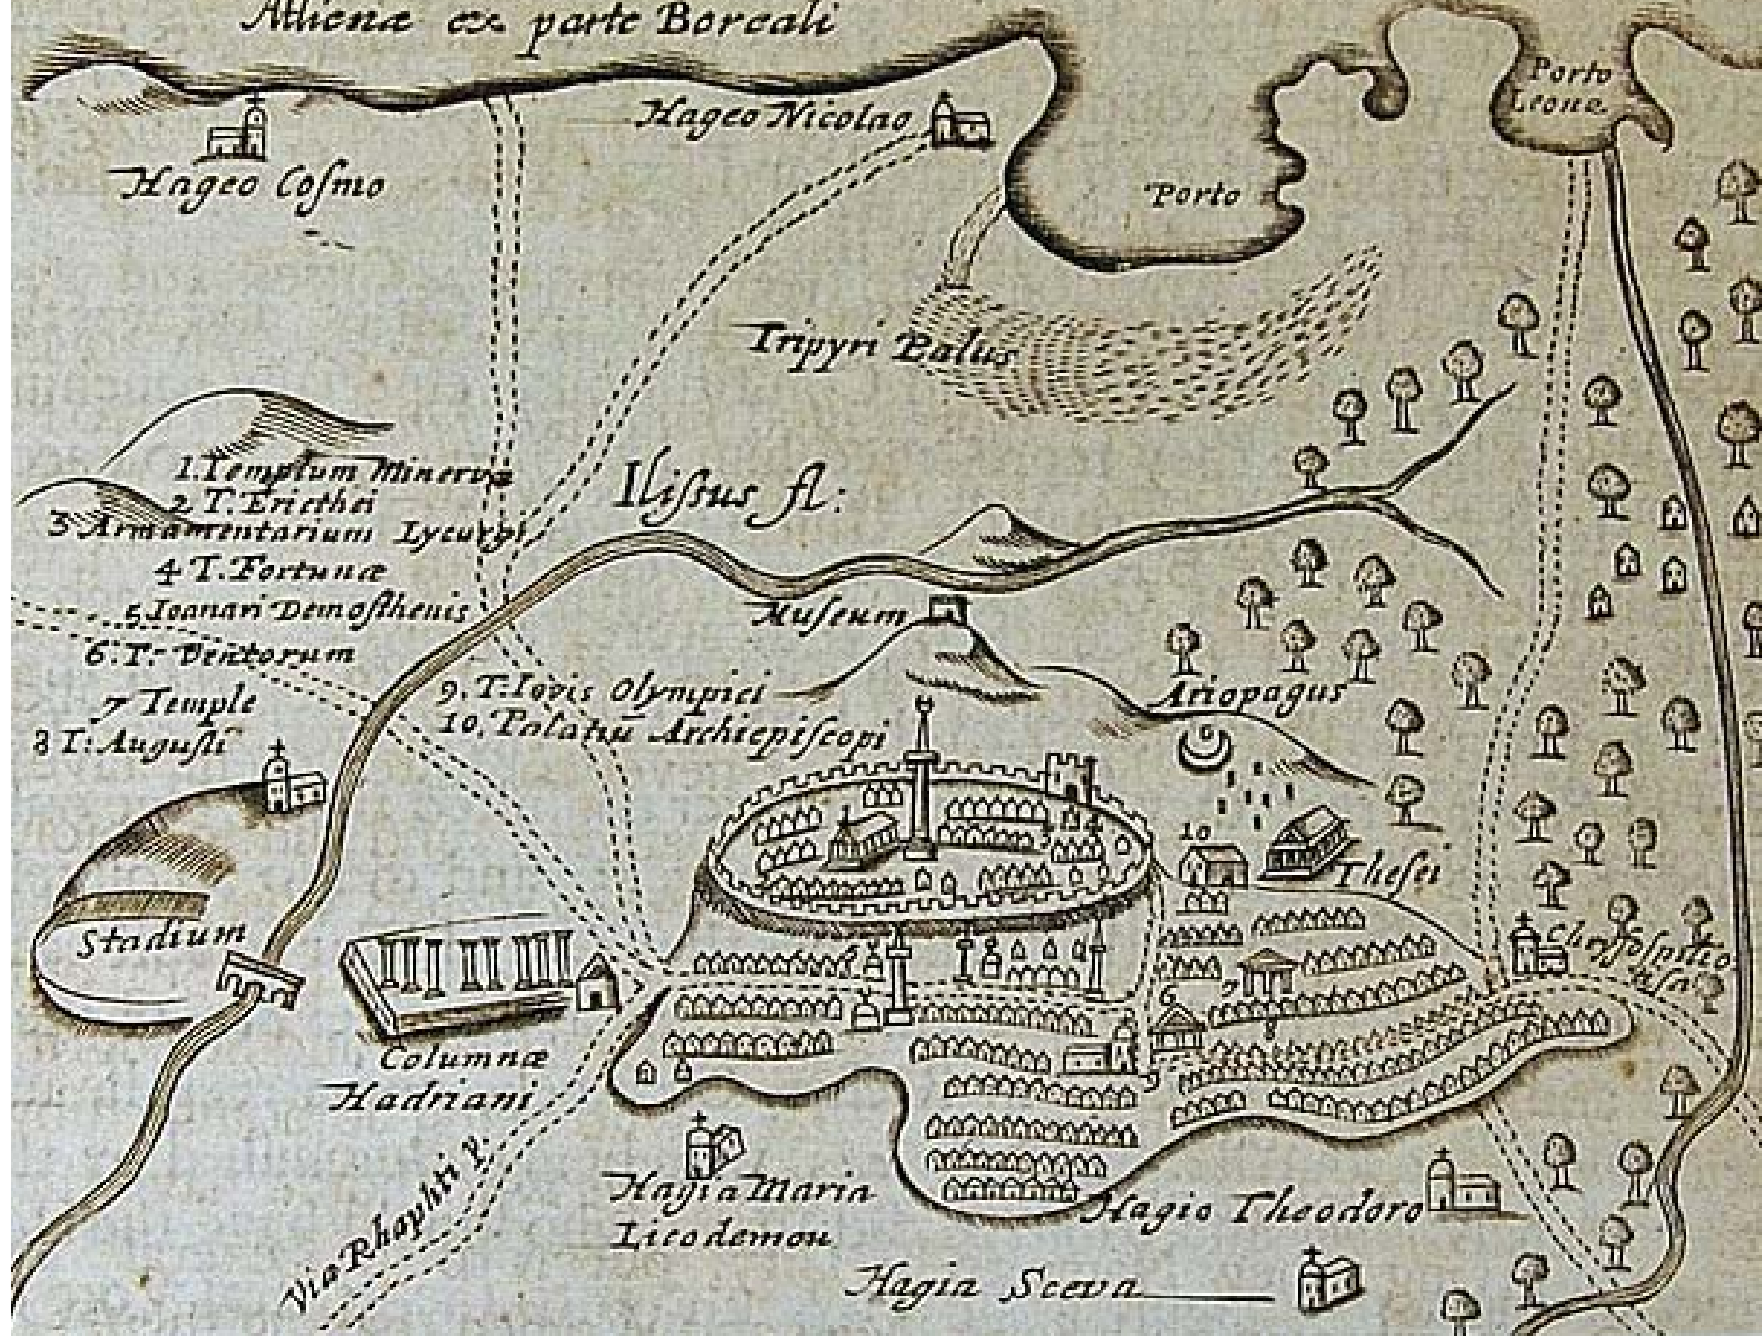 Athenæ ex parte Boreali
Porto
Leone
Hageo Nicolao
Hageo Cosmo
Porto
Tripyri Palus
1. Templum Minervæ
2 T. Ericthei
3 Armamentarium Lycurgi
4 T. Fortunæ
5. Ioanari Demosthenis
6. T. Ventorum
7 Temple
8 T: Augusti
Ilissus fl:
Museum
9. T. Iovis Olympici
10. Palatiū Archiepiscopi
Ariopagus
10
Thesei
Stadium
6
7
8
9
Columnæ
Hadriani
Via Rhaphti
Hagia Maria
Licodemou
Hagio Theodoro
Hagia Sceva